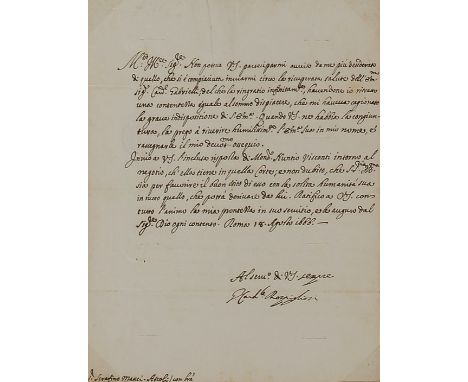 M.to Ill.re Sig.re Non poteva V.S. parteciparmi avviso da me più desiderato
di quello, che si è compiaciuta inviarmi circa la ricuperata salute dell' Em.mo
Sig. Card. Gabrielli, del che la ringratio infinitam.te, havendone io ricevuta
una contentezza eguale al sommo dispiacere, che mi haveva cagionato
la grave indisposizione di S. Em.za Quando V.S. ne habbia la congiun-
tura, la prego à riverire humilissimam.te S. Em.za Sua in mio nome, et
rassegnarle il mio devot.mo ossequio.
Invio a V.S. l'inclusa risposta di Mons.r Nuntio Visconti intorno al
negotio, ch'ella tiene in quella Corte; e non dubito, che S.S. Ill.ma
sia per favorire il buon esito di esso con la solita humanità sua
in tutto quello, che potrà derivare da lui. Ratifico a V.S. con
tutto l'animo la mia prontezza in suo servitio, e le auguro dal
Sig.re Dio ogni contento. Roma 18 Agosto 1666.
Al serv.o di V.S. sempre
Il Card.le Rospigliosi
S. Serafino Manci - Ascoli